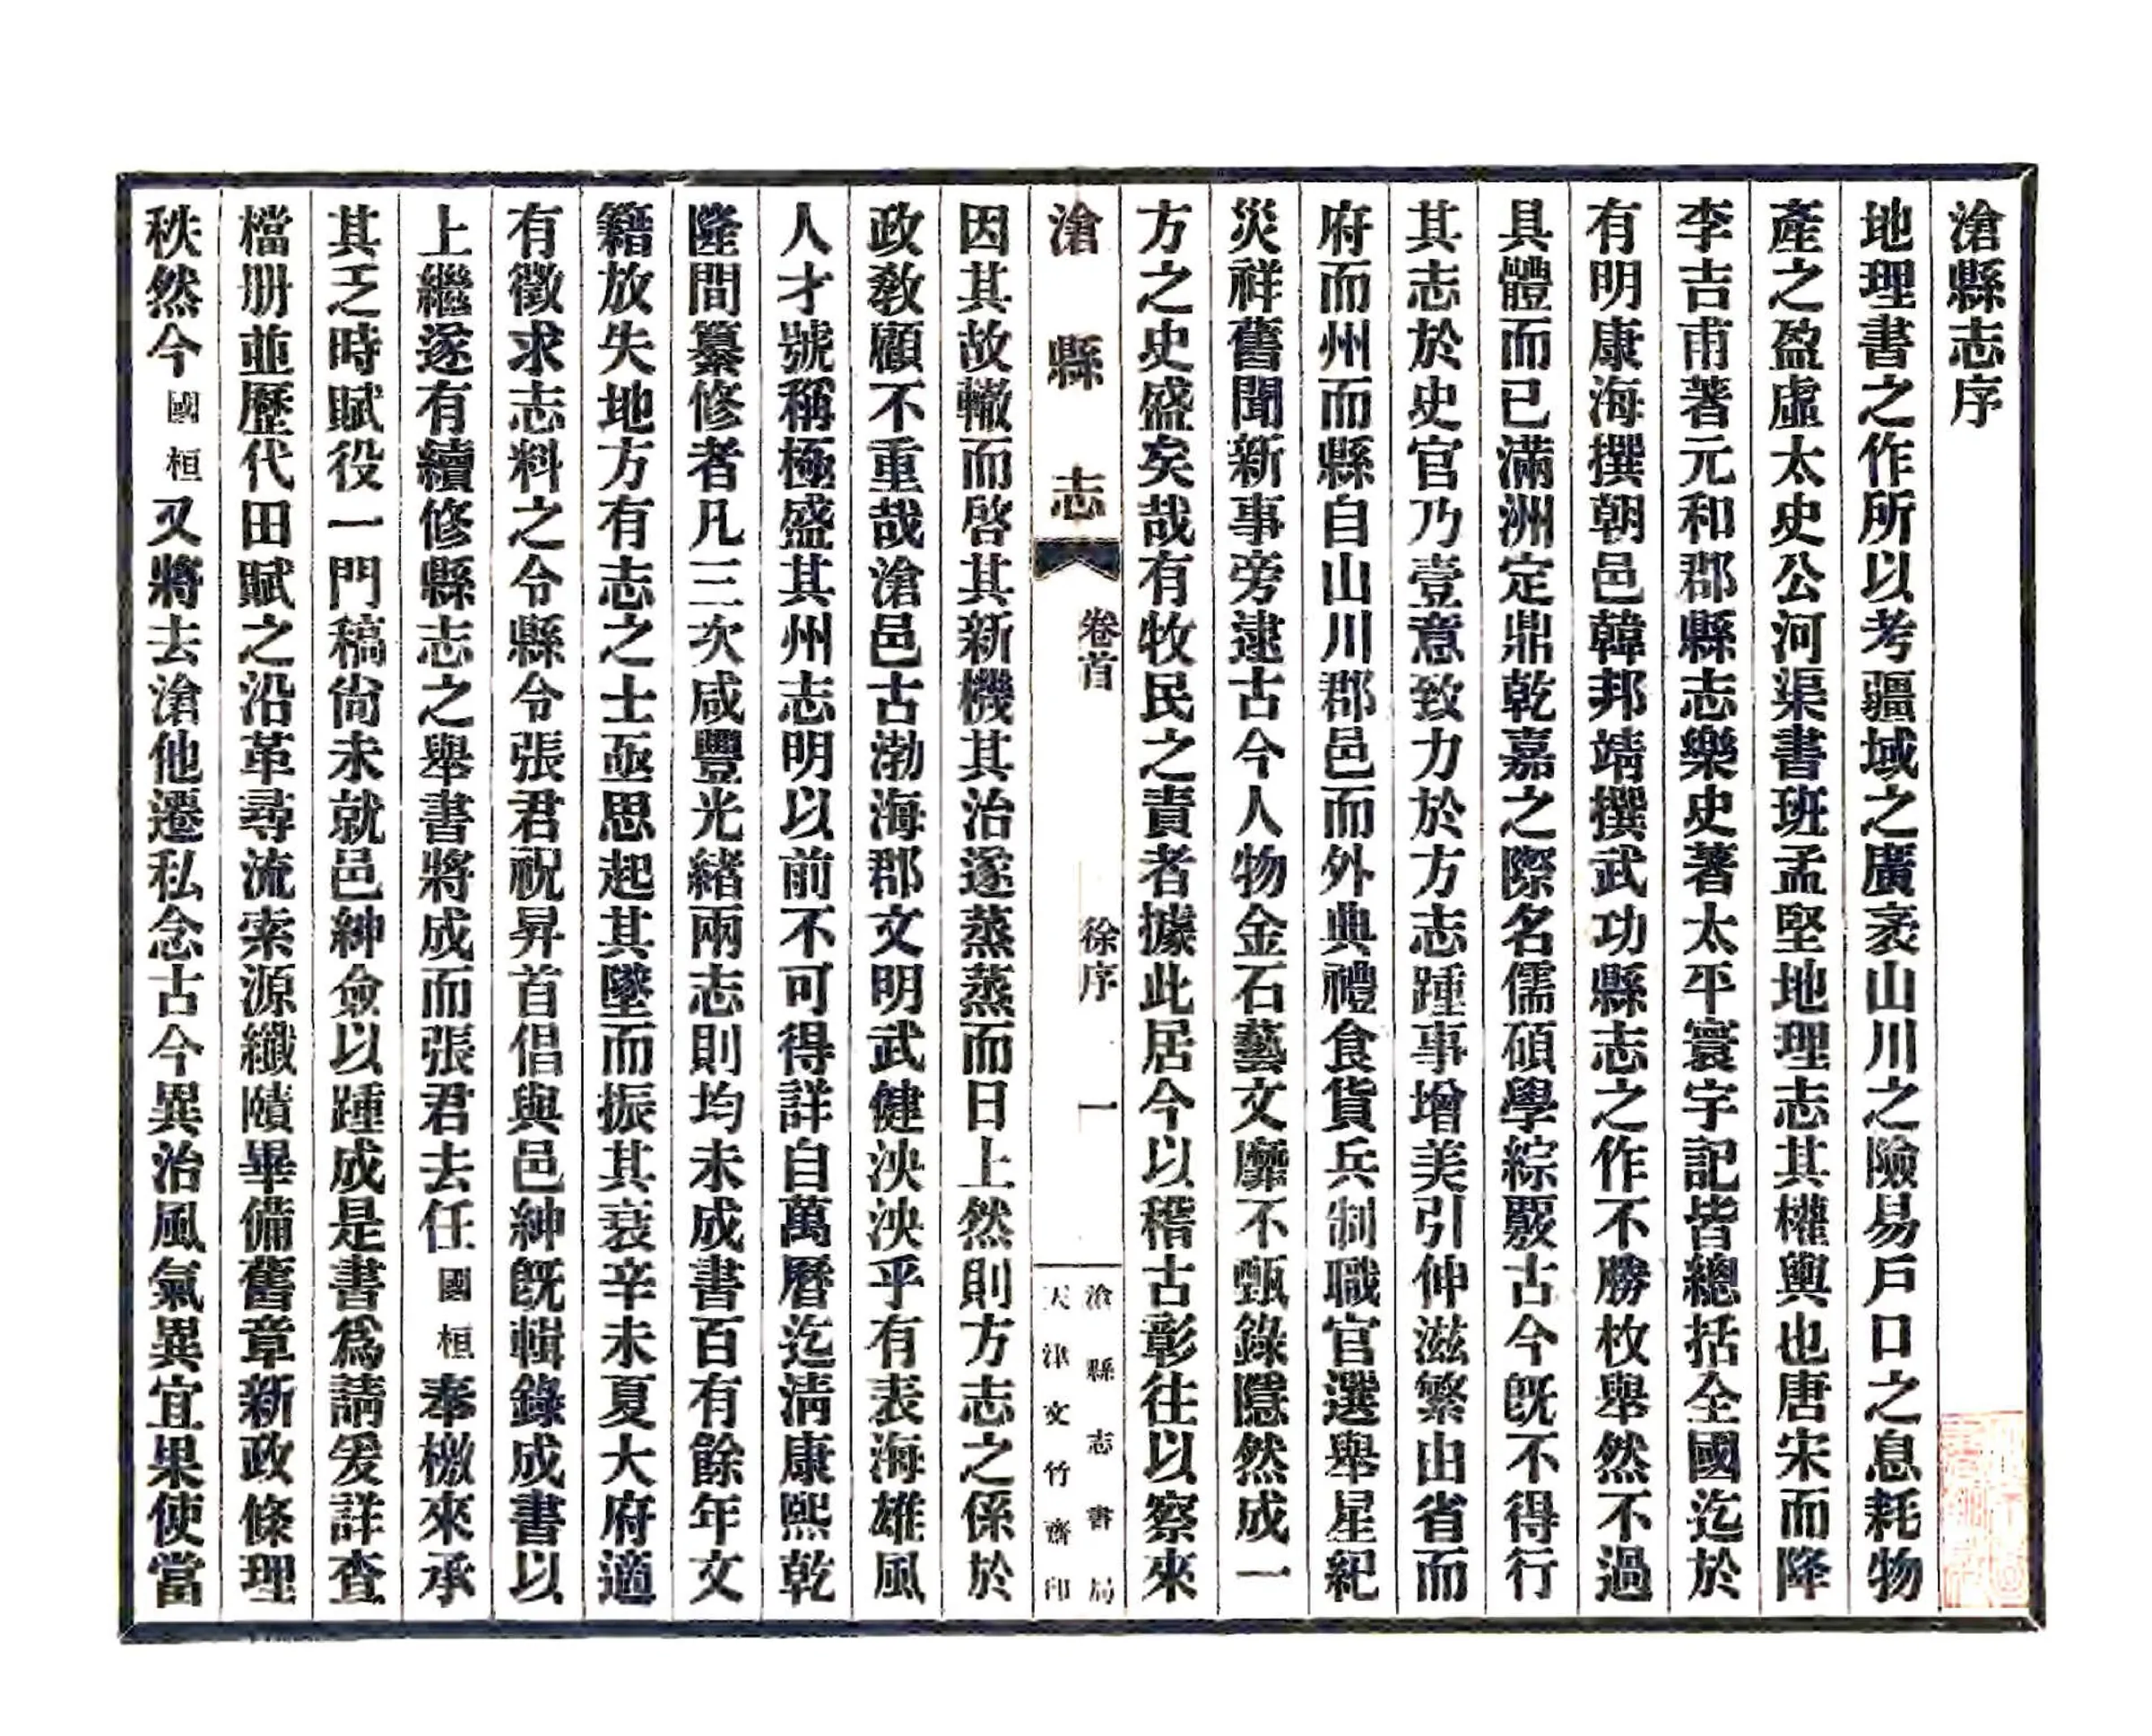 滄縣志序
地理書之作所以考疆域之廣袤山川之險易戶口之息耗物
產之盈虛太史公河渠書班孟堅地理志其權輿也唐宋而降
李吉甫著元和郡縣志樂史著太平寰宇記皆總括全國迄於
有明康海撰朝邑韓邦靖撰武功縣志之作不勝枚舉然不過
具體而已滿洲定鼎乾嘉之際名儒碩學綜覈古今旣不得行
其志於史官乃壹意致力於方志踵事增美引伸滋繁由省而
府而州而縣自山川郡邑而外典禮食貨兵制職官選舉星紀
災祥舊聞新事旁逮古今人物金石藝文靡不甄錄隱然成一
方之史盛矣哉有牧民之責者據此居今以稽古彰往以察來
滄縣志
卷首
徐序
一
滄縣志書局
天津文竹齋印
因其故轍而啓其新機其治遂蒸蒸而日上然則方志之係於
政敎顧不重哉滄邑古渤海郡文明武健泱泱乎有表海雄風
人才號稱極盛其州志明以前不可得詳自萬曆迄淸康熙乾
隆間纂修者凡三次咸豐光緒兩志則均未成書百有餘年文
籍放失地方有志之士亟思起其墜而振其衰辛未夏大府適
有徵求志料之令縣令張君祝昇首倡與邑紳旣輯錄成書以
上繼遂有續修縣志之舉書將成而張君去任國桓奉檄來承
其乏時賦役一門稿尙未就邑紳僉以踵成是書爲請爰詳查
檔册並歷代田賦之沿革尋流索源纖賾畢備舊章新政條理
秩然今國桓又將去滄他遷私念古今異治風氣異宜果使當